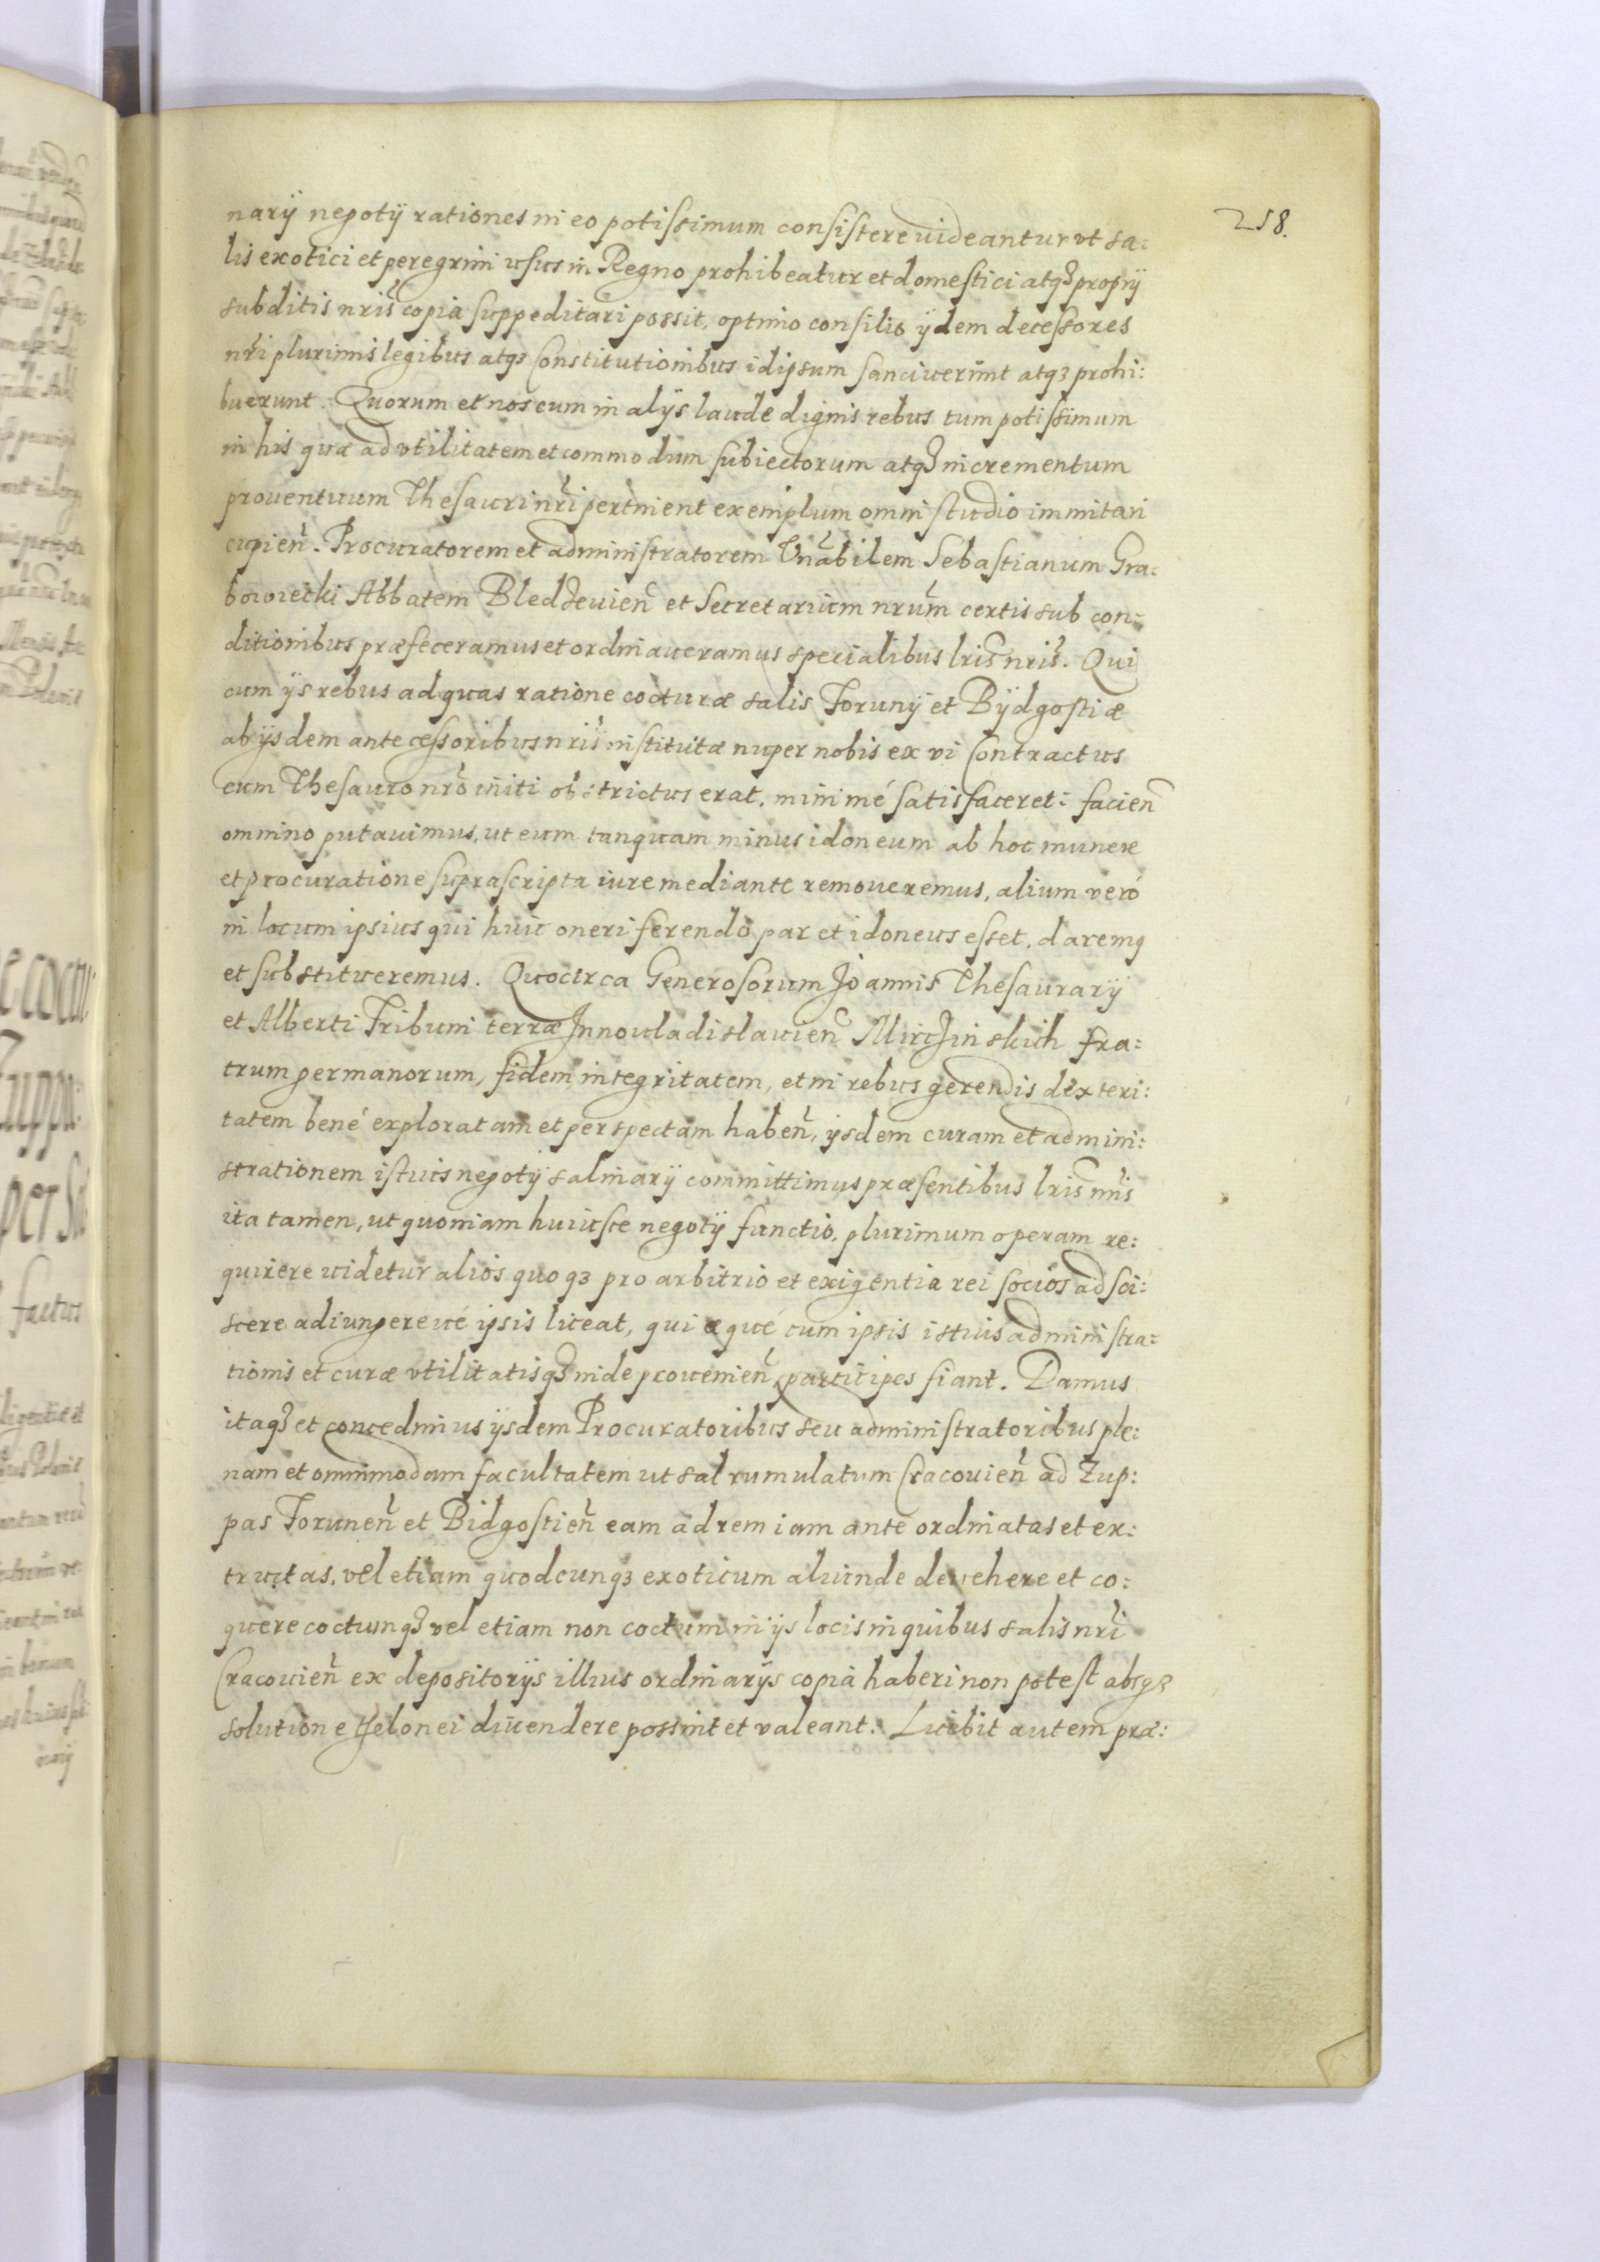 258.
narÿ negotÿ rationes in eo potissimum consistere uideantur vt sa:
lis exotici et peregrini usus in Regno prohibeatur et domestici atq₃ proprÿ
subditis nris copia suppeditari possit, optimo consilio ÿdem decessores
nri plurimis legibus atq₃ Constitutionibus id ipsum sanciuerint atq₃ prohi:
buerunt. Quorum et nos cum in alÿs laude dignis rebus tum potissimum
in his quæ ad vtilitatem et commodum subiectorum atq₃ incrementum
prouentuum Thesauri nri pertinent exemplum omni studio immitari
cupien. Procuratorem et administratorem Vnabilem Sebastianum Gra:
bowiecki Abbatem Bledzeuien et Secretarium nrum certis sub con:
ditionibus præfeceramus et ordinaueramus specialibus lris nris. Qui
cum ÿs rebus ad quas ratione cocturæ salis Torunÿ et Bÿdgostiæ
ab ÿsdem antecessoribus nris institutæ nuper nobis ex vi Contractus
cum Thesauro nro initi obstrictus erat, minimé satisfaceret: facien
omnino putauimus, ut eum tanquam minus idoneum ab hoc munere
et procuratione suprascripta iure mediante remoueremus, alium veró
in locum ipsius qui huic oneri ferendo par et idoneus esset, daremq
et substitueremus. Quocirca Generosorum Joannis Thesaurarÿ
et Alberti Tribuni terræ Jnnouladislauien Mirzinskich fra:
trum germanorum, fidem, integritatem, et in rebus gerendis dexteri:
tatem bené exploratam et perspectam haben, ÿsdem curam et admini:
strationem istius negotÿ salinarÿ committimus præsentibus lris nris
ita tamen, ut quoniam huiusce negotÿ functio, plurimum operam re:
quirere uidetur alios quoq₃ pro arbitrio et exigentia rei socios adsci:
scere adiungereué ipsis liceat, qui æqué cum ipsis istius administra:
tionis et curæ vtilitatisq₃ inde prouenien, participes fiant. Damus
itaq₃ et concedimus ÿsdem Procuratoribus seu administratoribus ple:
nam et omnimodam facultatem ut sal rumulatum Cracouien ad Zup:
pas Torunen et Bidgostien eam ad rem iam ante ordinatas et ex:
tructas, vel etiam quodcunq₃ exoticum aliunde devehere et co:
quere coctumq₃ vel etiam non coctum in ÿs locis in quibus salis nri
Cracouien ex depositorÿs illius ordinarÿs copia haberi non potest absq₃
solutione thelonei diuendere possint et valeant. Licebit autem præ: